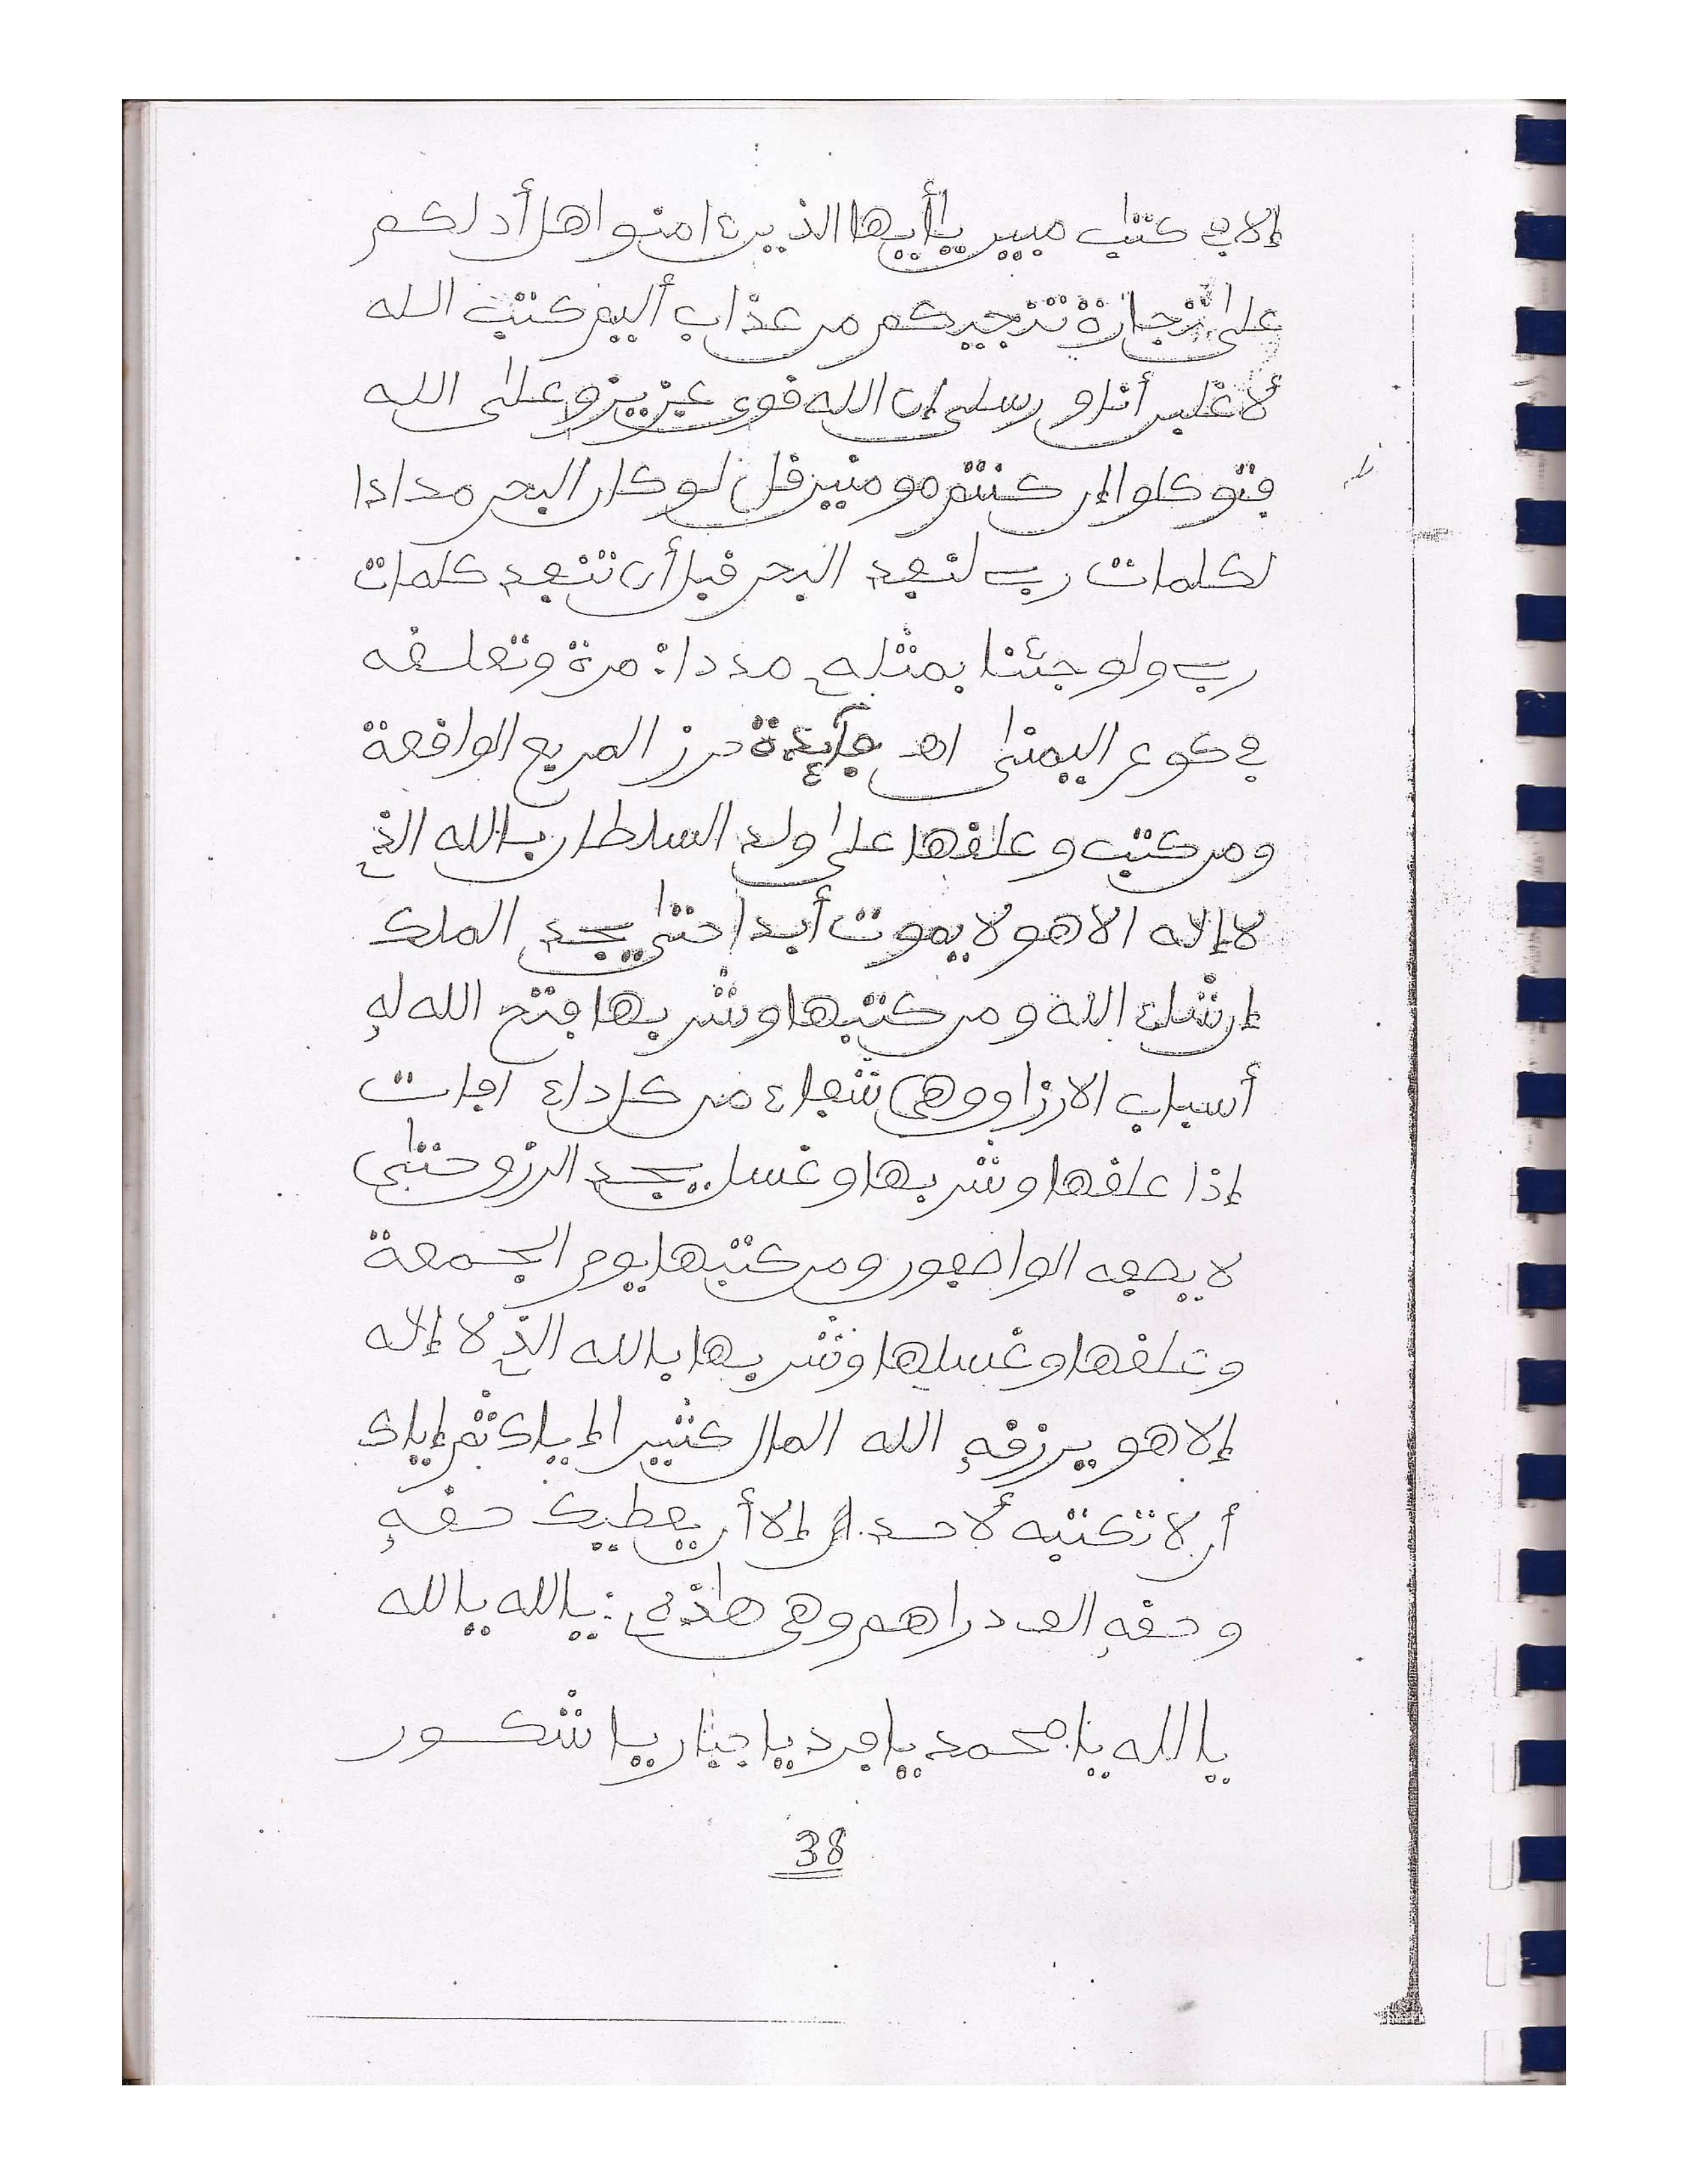 إلا في كتٰب مبين يٰأيها الذين ءامنوا هل أدلكم
علىٰ تجارة تنجيكم من عذاب أليم كتب الله
لأغلبن أنا ورسلى إن الله قوى عزيز وعلى الله
فتوكلوا إن كنتم مومنين قل لو كان البحر مدادا
لكلمات رب لنفد البحر قبل أن تنفد كلمات
رب ولو جئنا بمثله مددا: مرة وتعلقه
في كوع اليمنىٰ اهـ فآئدة حرز المربع الواقعة
ومن كتب وعلقها علىٰ ولد السلطان بالله الذي
لا إله الا هو لا يموت أبدا حتىٰ يجد الملك
إن شاء الله ومن كتبها وشربها فتح الله له
أسباب الارزاق وهى شفاء من كل داء افات
إذا علقها وشربها وغسل يجد الرزق حتىٰ
لا يصفه الواصفون ومن كتبها يوم الجمعة
وعلقها وغسلها وشربها بالله الذي لا إله
إلا هو يرزقه الله المال كثيرا إياك ثم إياك
أن لا تكتبه لأحد إلا أن يعطيك حقه
وحقه الف دراهم وهى هٰذه: يالله يالله
يا الله يا محمد يا فرد يا جبار يا شكور
38